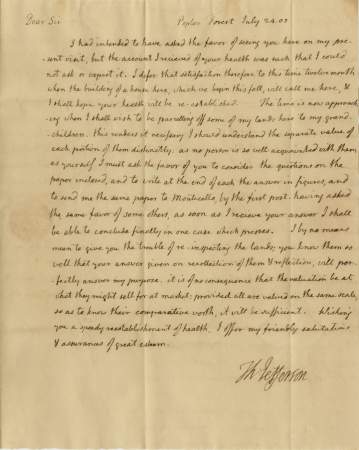 Dear Sir Poplar Forest July 24. 05
I had intended to have asked the favor of seeing you here on my pre-
sent visit, but the account I recieved of your health was such that I could
not ask or expect it. I defer that satisfaction therefore to this time twelvemonth
when the building of a house here, which we begin this fall, will call me here, &
I shall hope your health will be re-established. The time is now approach-
ing when I shall wish to be parcelling off some of my lands here to my grand-
children. this renders it necessary I should understand the separate value of
each portion of them distinctly. as no person is so well acquainted with them
as yourself I must ask the favor of you to consider the questions on the
paper inclosed, and to write at the end of each the answer in figures, and
to send me the same paper to Monticello, by the first post. having asked
the same favor of some others, as soon as I recieve your answer I shall
be able to conclude finally in one case which presses. I by no means
mean to give you the trouble of re-inspecting the lands; you know them so
well that your answer given on recollection of them & reflection, will per-
fectly answer my purpose. it is of no consequence that the valuation be at
what they might sell for at market: provided all are valued on the same scale,
so as to know their comparative worth, it will be sufficient. Wishing
you a speedy reestablishment of health, I offer my friendly salutations
& assurances of great esteem.
Th Jefferson